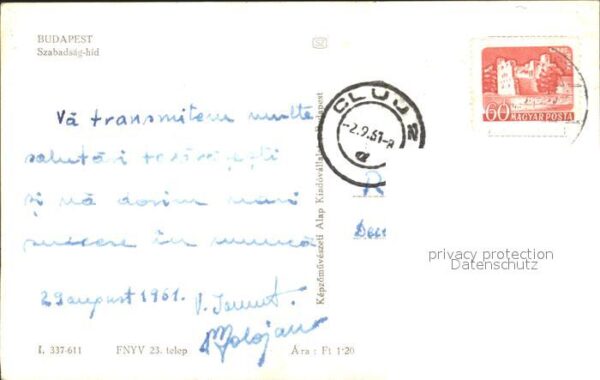 BUDAPEST
Szabadság-híd
Vă transmitem multe
salutări tovărășești
și vă dorim mari
succese în muncă
29 august 1961.
CLUJ 2
-2.9.61-8
a
60f
MAGYAR POSTA
Képzőművészeti Alap Kiadóvállalata, Budapest
R
privacy protection
Datenschutz
I. 337-611 FNYV 23. telep Ára : Ft 1·20